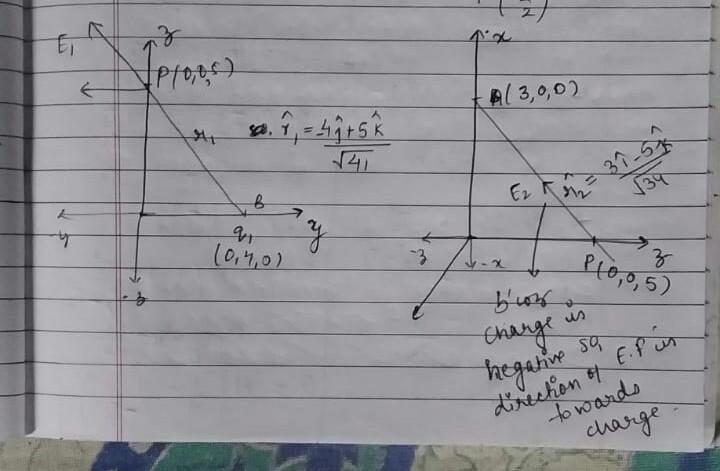 (/2)
E₁
z
P(0,0,5)
r₁
r̂₁ = -4ĵ+5k̂
√41
B
-y
q₁
y
(0,4,0)
-z
x
A(3,0,0)
E₂
r̂₂ = 3î-5k̂
√34
-z
-x
z
P(0,0,5)
b'coz
charge is
negative so,
E.F is
direction of
towards
charge.